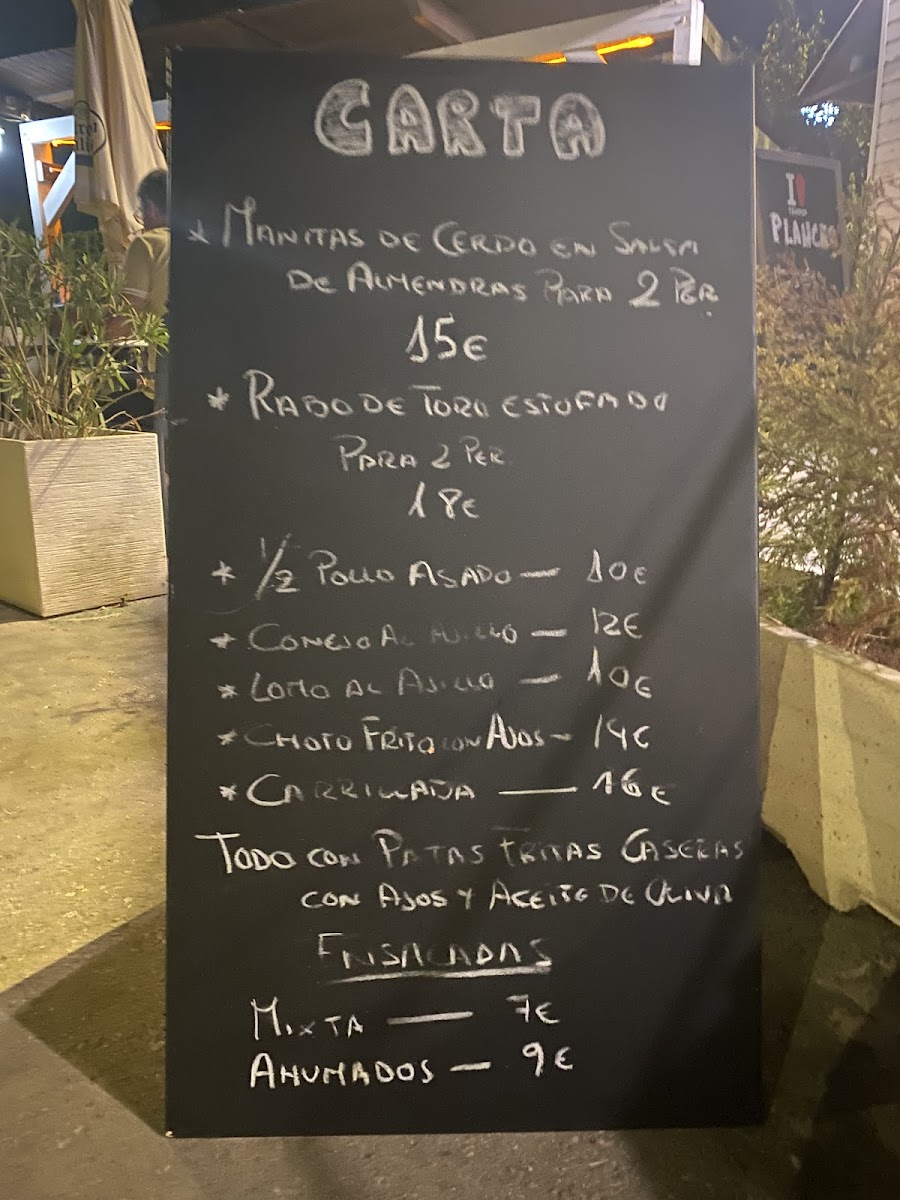 CARTA
* MANITAS DE CERDO EN SALSA
DE ALMENDRAS PARA 2 PER.
15€
* RABO DE TORO ESTOFADO
PARA 2 PER.
18€
* 1/2 POLLO ASADO — 10€
* CONEJO AL AJILLO — 12€
* LOMO AL AJILLO — 10€
* CHOTO FRITO CON AJOS - 14€
* CARRILLADA — 16€
TODO CON PATAS FRITAS CASERAS
CON AJOS Y ACEITE DE OLIVA
ENSALADAS
MIXTA — 7€
AHUMADOS — 9€
I
PLANCHA